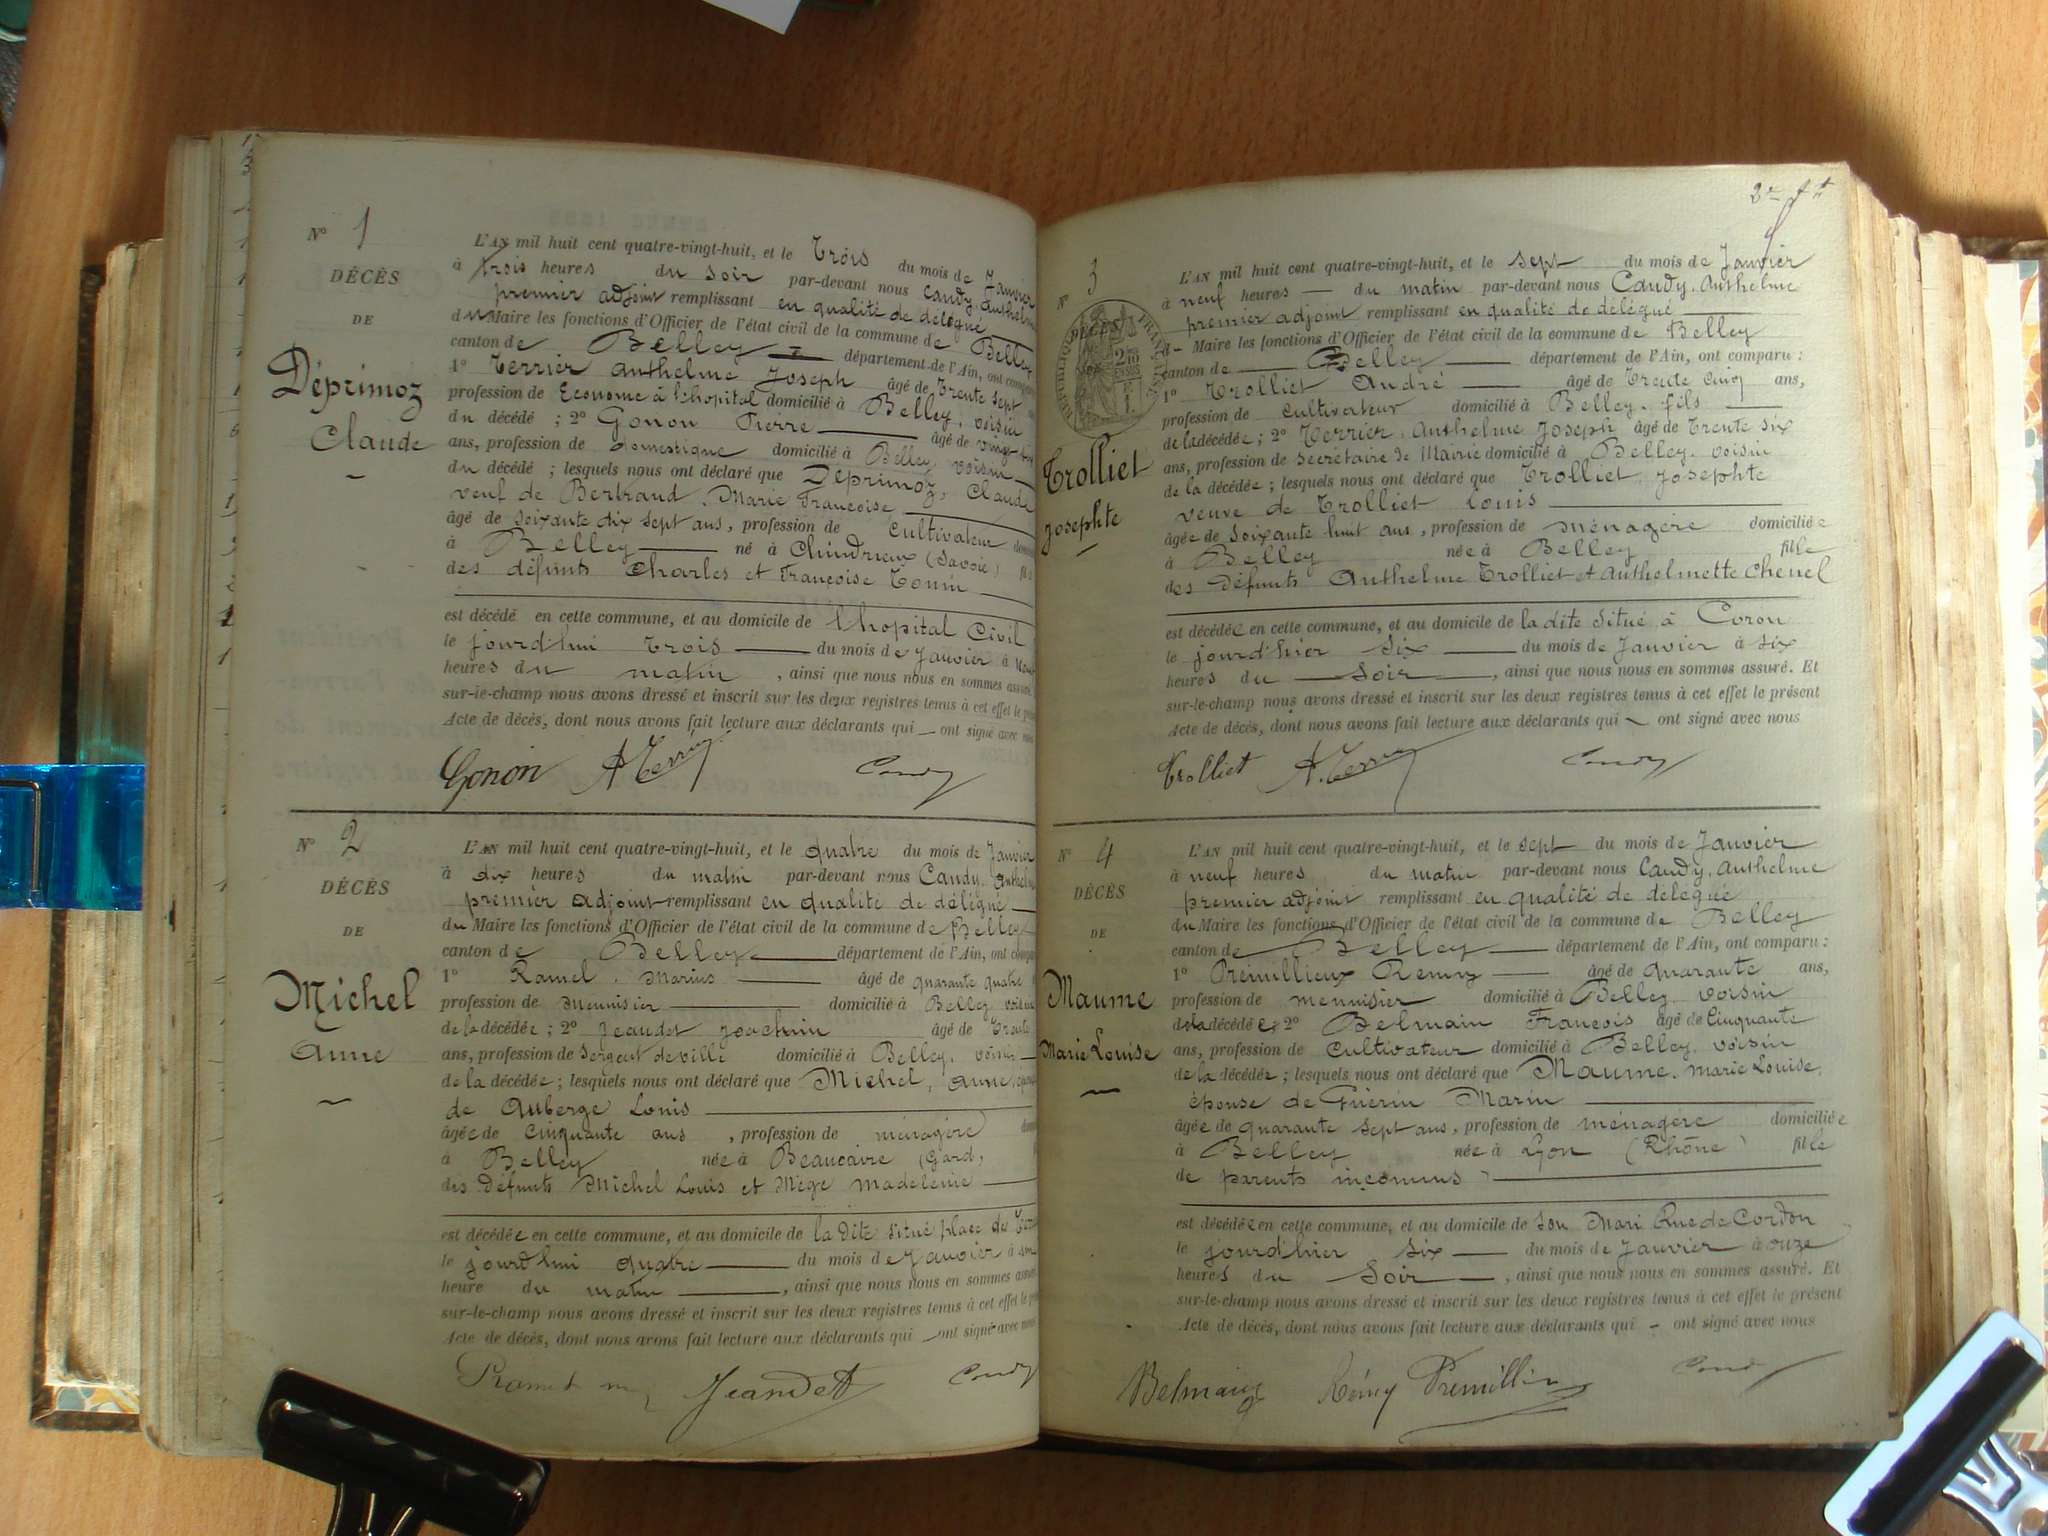 N° 1
DÉCÈS
DE
Déprimoz
Claude
L'AN mil huit cent quatre-vingt-huit, et le Trois du mois de Janvier
à trois heures du soir par-devant nous Caudy, Anthelme
premier adjoint remplissant en qualité de délégué
du Maire les fonctions d'Officier de l'état civil de la commune de Belley
canton de Belley département de l'Ain, ont comparu
1° Terrier Anthelme Joseph âgé de Trente sept
profession de Econome à l'hopital domicilié à Belley, voisin
du décédé ; 2° Gonon Pierre âgé de vingt
ans, profession de domestique domicilié à Belley voisin
du décédé ; lesquels nous ont déclaré que Déprimoz, Claude
veuf de Bertrand, Marie Françoise
âgé de soixante dix sept ans, profession de cultivateur
à Belley né à Chindrieux (Savoie)
des défunts Charles et Françoise Tonin
est décédé en cette commune, et au domicile de l'hopital Civil
le jourd'hui trois du mois de Janvier à
heures du matin, ainsi que nous nous en sommes assuré.
sur-le-champ nous avons dressé et inscrit sur les deux registres tenus à cet effet le
Acte de décès, dont nous avons fait lecture aux déclarants qui – ont signé avec nous
Gonon A Terrier Caudy
N° 2
DÉCÈS
DE
Michel
Anne
L'AN mil huit cent quatre-vingt-huit, et le quatre du mois de Janvier
à dix heures du matin par-devant nous Caudy, Anthelme
premier adjoint remplissant en qualité de délégué
du Maire les fonctions d'Officier de l'état civil de la commune de Belley
canton de Belley département de l'Ain, ont
1° Ramel, Marius âgé de quarante quatre
profession de menuisier domicilié à Belley voisin
de la décédée ; 2° Jeandet Joachim âgé de Trente
ans, profession de Sergent de ville domicilié à Belley, voisin
de la décédée ; lesquels nous ont déclaré que Michel, Anne,
de Auberge Louis
âgée de cinquante ans, profession de ménagère
à Belley née à Beaucaire (Gard)
des défunts Michel Louis et Mège Madeleine
est décédée en cette commune, et au domicile de la dite situé place des
le jourd'hui quatre du mois de Janvier à
heure du matin, ainsi que nous nous en sommes
sur-le-champ nous avons dressé et inscrit sur les deux registres tenus à cet effet le
Acte de décès, dont nous avons fait lecture aux déclarants qui – ont signé avec nous
Jeandet Caudy
N° 3
DÉCÈS
Trolliet
Josephte
L'AN mil huit cent quatre-vingt-huit, et le sept du mois de Janvier
à neuf heures – du matin par-devant nous Caudy, Anthelme
premier adjoint remplissant en qualité de délégué
Maire les fonctions d'Officier de l'état civil de la commune de Belley
canton de Belley département de l'Ain, ont comparu :
1° Trolliet André âgé de Trente cinq ans,
profession de cultivateur domicilié à Belley, fils
de la décédée ; 2° Terrier, Anthelme Joseph âgé de Trente six
ans, profession de Secrétaire de Mairie domicilié à Belley, voisin
de la décédée ; lesquels nous ont déclaré que Trolliet, Josephte
veuve de Trolliet Louis
âgée de soixante huit ans, profession de ménagère domiciliée
à Belley née à Belley fille
des défunts Anthelme Trolliet et Anthelmette Chenel
est décédée en cette commune, et au domicile de la dite situé à Coron
le jourd'hier six du mois de Janvier à six
heures du soir, ainsi que nous nous en sommes assuré. Et
sur-le-champ nous avons dressé et inscrit sur les deux registres tenus à cet effet le présent
Acte de décès, dont nous avons fait lecture aux déclarants qui – ont signé avec nous
Trolliet A. Terrier Caudy
N° 4
DÉCÈS
DE
Maume
Marie Louise
L'AN mil huit cent quatre-vingt-huit, et le sept du mois de Janvier
à neuf heures du matin par-devant nous Caudy, Anthelme
premier adjoint remplissant en qualité de délégué
du Maire les fonctions d'Officier de l'état civil de la commune de Belley
canton de Belley département de l'Ain, ont comparu :
1° Premillieux Remy âgé de quarante ans,
profession de menuisier domicilié à Belley voisin
de la décédée ; 2° Belmain François âgé de Cinquante
ans, profession de Cultivateur domicilié à Belley, voisin
de la décédée ; lesquels nous ont déclaré que Maume, Marie Louise,
épouse de Guerin Marin
âgée de quarante sept ans, profession de ménagère domiciliée
à Belley née à Lyon (Rhône) fille
de parents inconnus
est décédée en cette commune, et au domicile de son Mari Rue de Cordon
le jourd'hier six du mois de Janvier à onze
heures du Soir, ainsi que nous nous en sommes assuré. Et
sur-le-champ nous avons dressé et inscrit sur les deux registres tenus à cet effet le présent
Acte de décès, dont nous avons fait lecture aux déclarants qui – ont signé avec nous
Belmain Rémy Premillieu Caudy